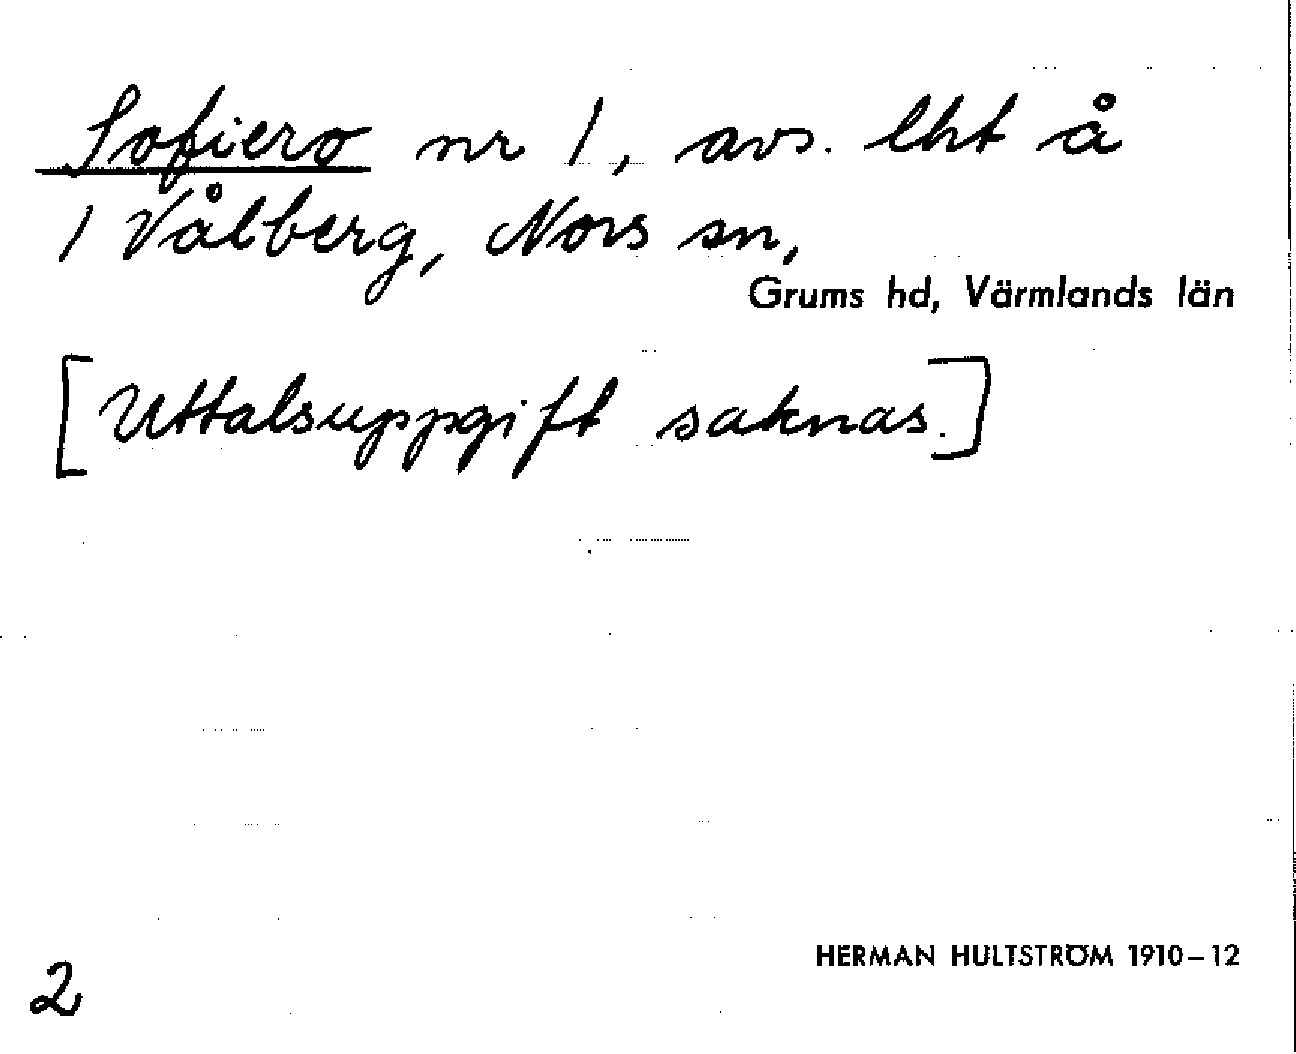 Sofiero nr 1, avs. lht å
1 Vålberg, Nors sn,
Grums hd, Värmlands län
[Uttalsuppgift saknas.]
HERMAN HULTSTRÖM 1910–12
2